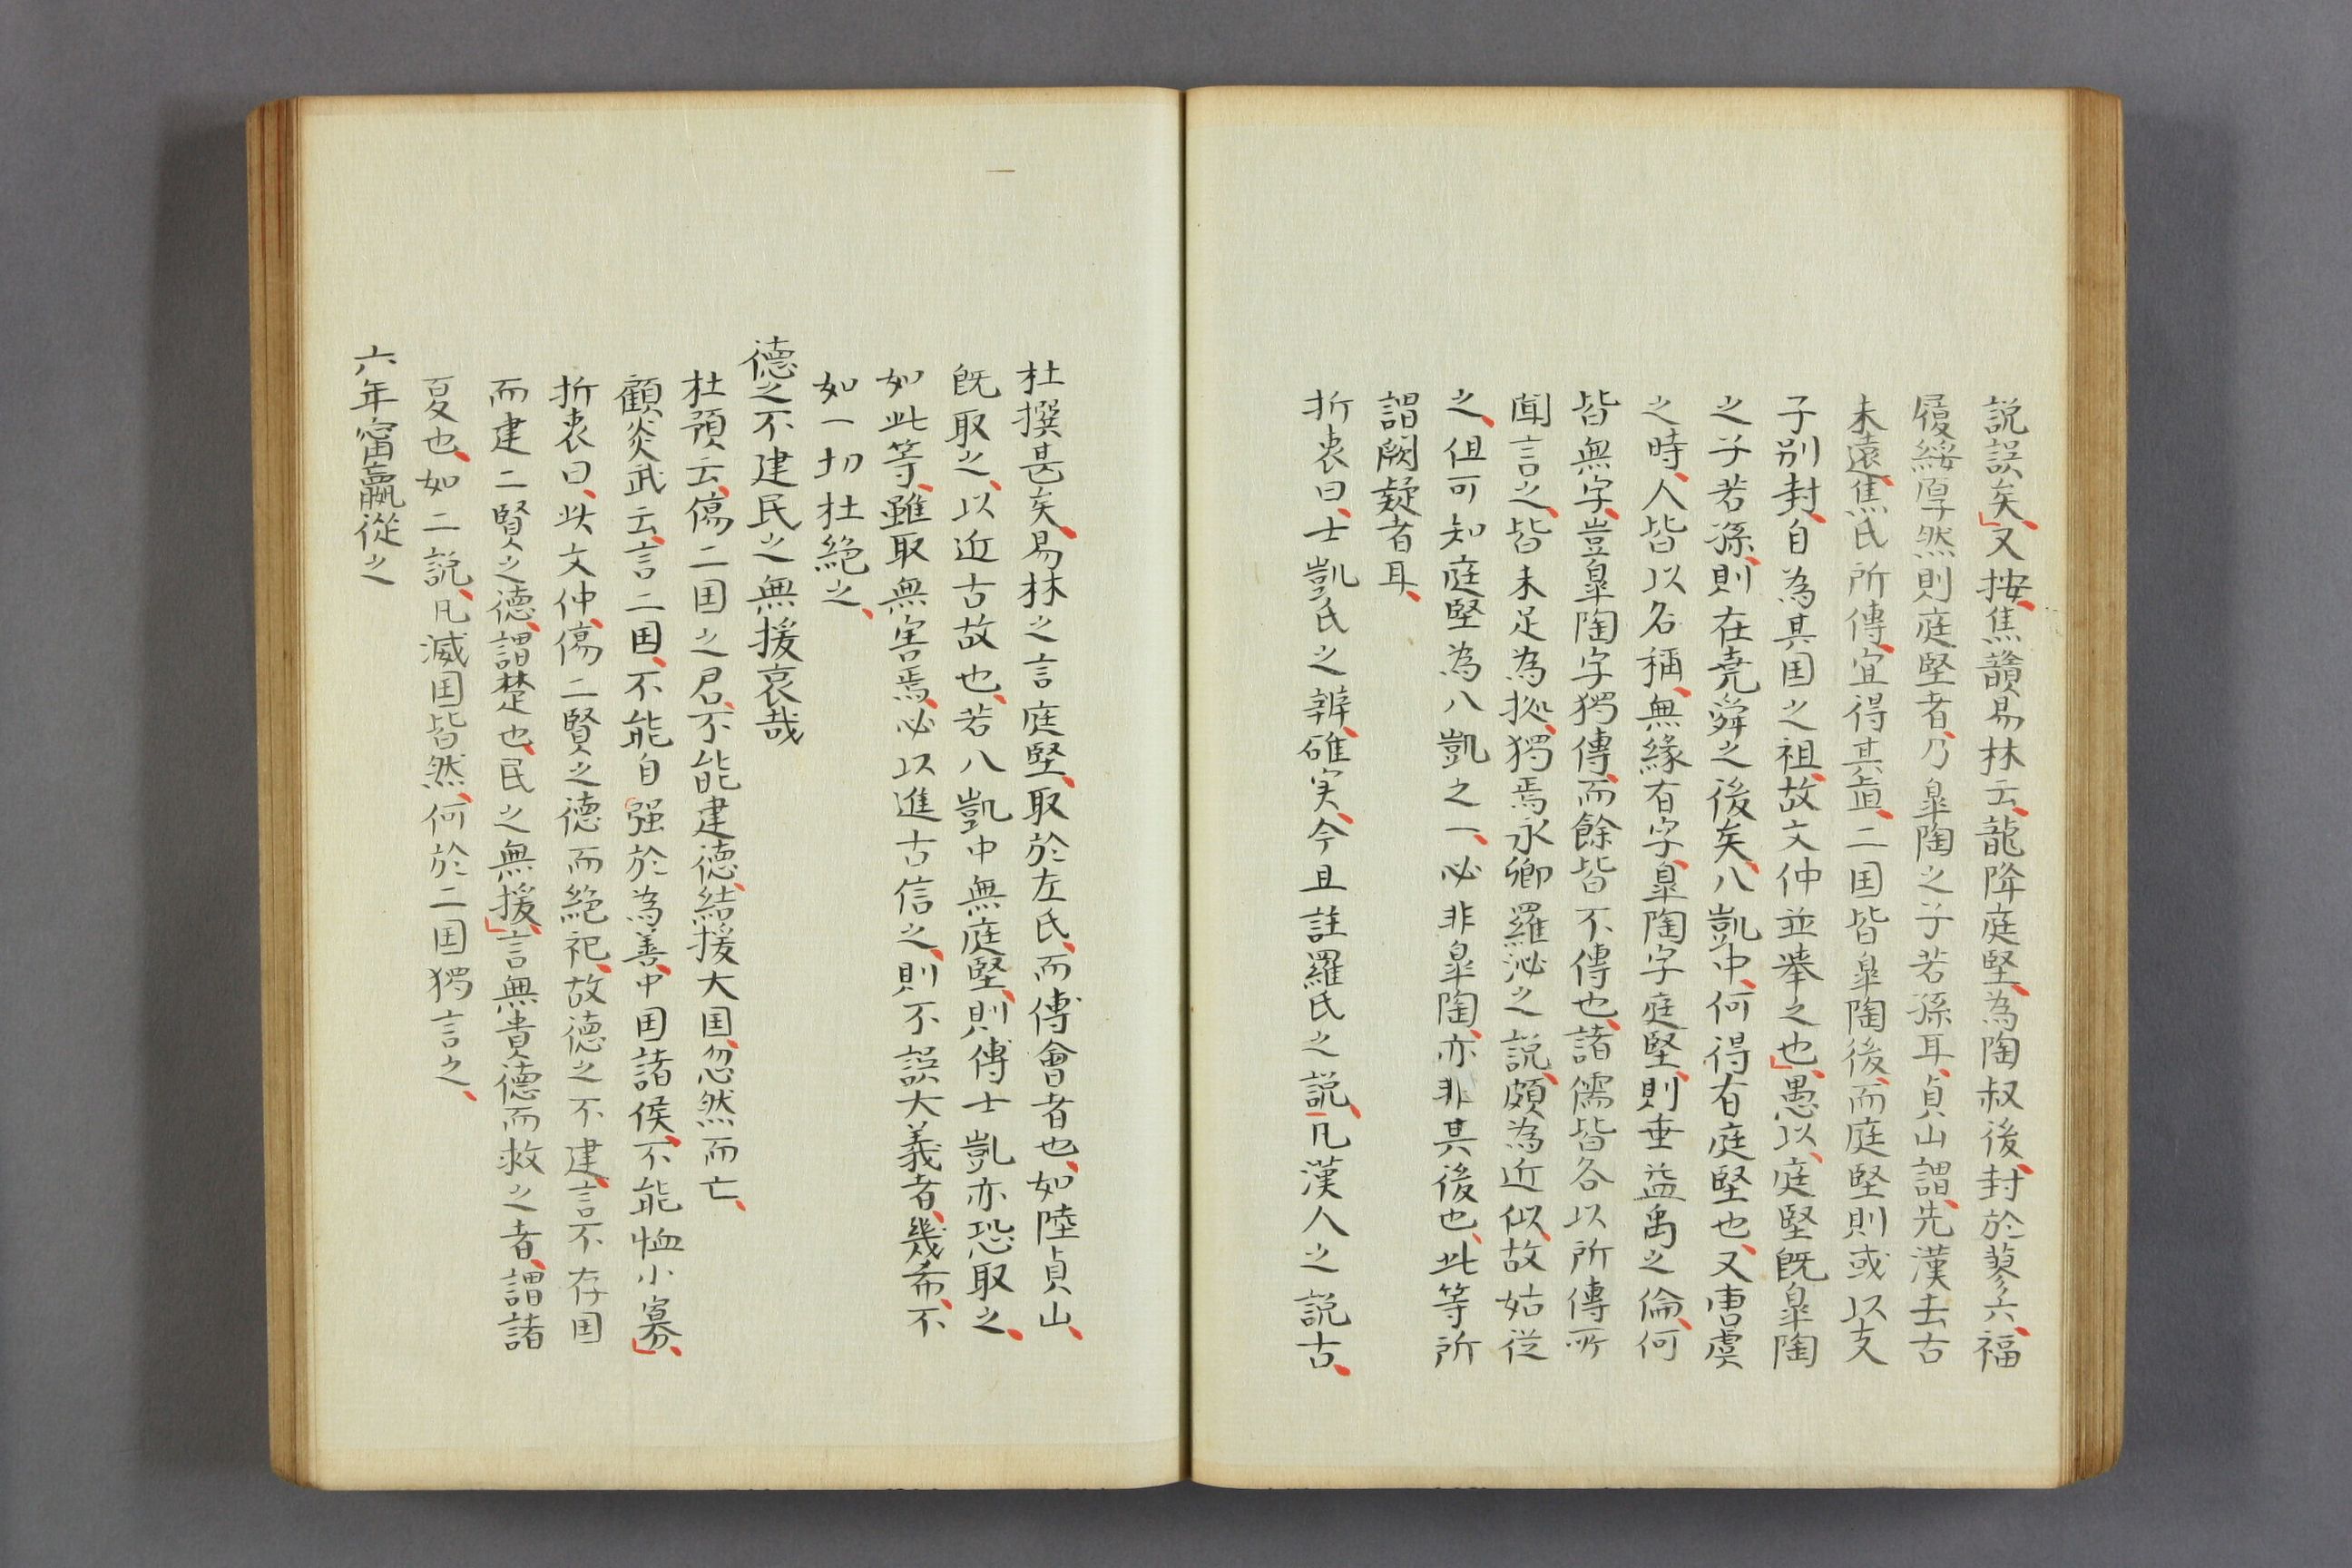 説誤矣、」又按、焦贛易林云、龍降庭堅、為陶叔後、封於蓼六、福
履綏厚、然則庭堅者、乃皐陶之子若孫耳、貞山謂、先漢去古
未遠、焦氏所傳、宜得其眞、二囯皆皐陶後、而庭堅則或以支
子別封、自為其囯之祖、故文仲並挙之也、」愚以、庭堅既皐陶
之子若孫、則在堯舜之後矣、八凱中、何得有庭堅也、又唐虞
之時、人皆以名稱、無緣有字、皐陶字庭堅、則垂益禹之倫、何
皆無字、豈皐陶字獨傳、而餘皆不傳也、諸儒皆各以所傳所
聞言之、皆未足為拠、獨馬永卿羅泌之説、頗為近似、故姑従
之、但可知庭堅為八凱之一、必非皐陶、亦非其後也、此等所
謂闕疑者耳、
折衷曰、士凱氏之辨、確実、今且註羅氏之説、凡漢人之説古、
杜撰甚矣、易林之言庭堅、取於左氏、而傅會者也、如陸貞山、
既取之、以近古故也、若八凱中無庭堅、則傅士凱亦恐取之、
如此等、雖取無害焉、必以進古信之、則不誤大義者、幾希、不
如一切杜絶之、
德之不建民之無援哀哉
杜預云、傷二囯之君、不能建德、結援大囯、忽然而亡、
顧炎武云、言二囯、不能自强於為善、中囯諸侯、不能恤小寡、」
折衷曰、此文仲、傷二賢之德而絶祀、故德之不建、言不存囯
而建二賢之德、謂楚也、民之無援、」言無貴德而救之者、謂諸
夏也、如二説、凡滅囯皆然、何於二囯獨言之、
六年甯嬴從之